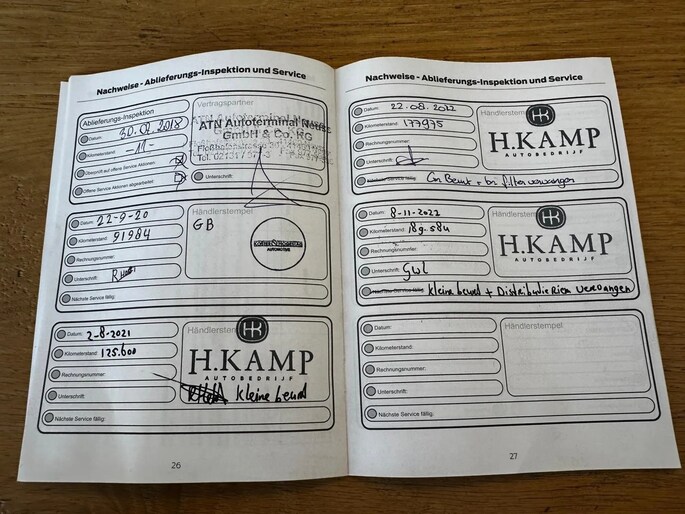 Nachweise - Ablieferungs-Inspektion und Service
Ablieferungs-Inspektion
Datum: 30.01.2018
Kilometerstand: -11-
Überprüft auf offene Service Aktionen:
Offene Service Aktionen abgearbeitet:
Vertragspartner
ATN Autoterminal Neuss
GmbH & Co. KG
Tel. 02131
Unterschrift:
Datum: 22-9-20
Kilometerstand: 91984
Rechnungsnummer:
Unterschrift:
Nächste Service fällig:
Händlerstempel
GB
AUTOMOTIVE
Datum: 2-8-2021
Kilometerstand: 125.600
Rechnungsnummer:
Unterschrift:
Nächste Service fällig:
Händlerstempel
HK
H.KAMP
AUTOBEDRIJF
kleine beurt
26
Nachweise - Ablieferungs-Inspektion und Service
Datum: 22.08.2022
Kilometerstand: 177975
Rechnungsnummer:
Unterschrift:
Nächste Service fällig:
Händlerstempel
HK
H.KAMP
AUTOBEDRIJF
Beurt + filter vervangen
Datum: 8-11-2022
Kilometerstand: 189.584
Rechnungsnummer:
Unterschrift:
Nächste Service fällig: kleine beurt + Distributie Riem vervangen
Händlerstempel
HK
H.KAMP
AUTOBEDRIJF
Datum:
Kilometerstand:
Rechnungsnummer:
Unterschrift:
Nächste Service fällig:
Händlerstempel
27